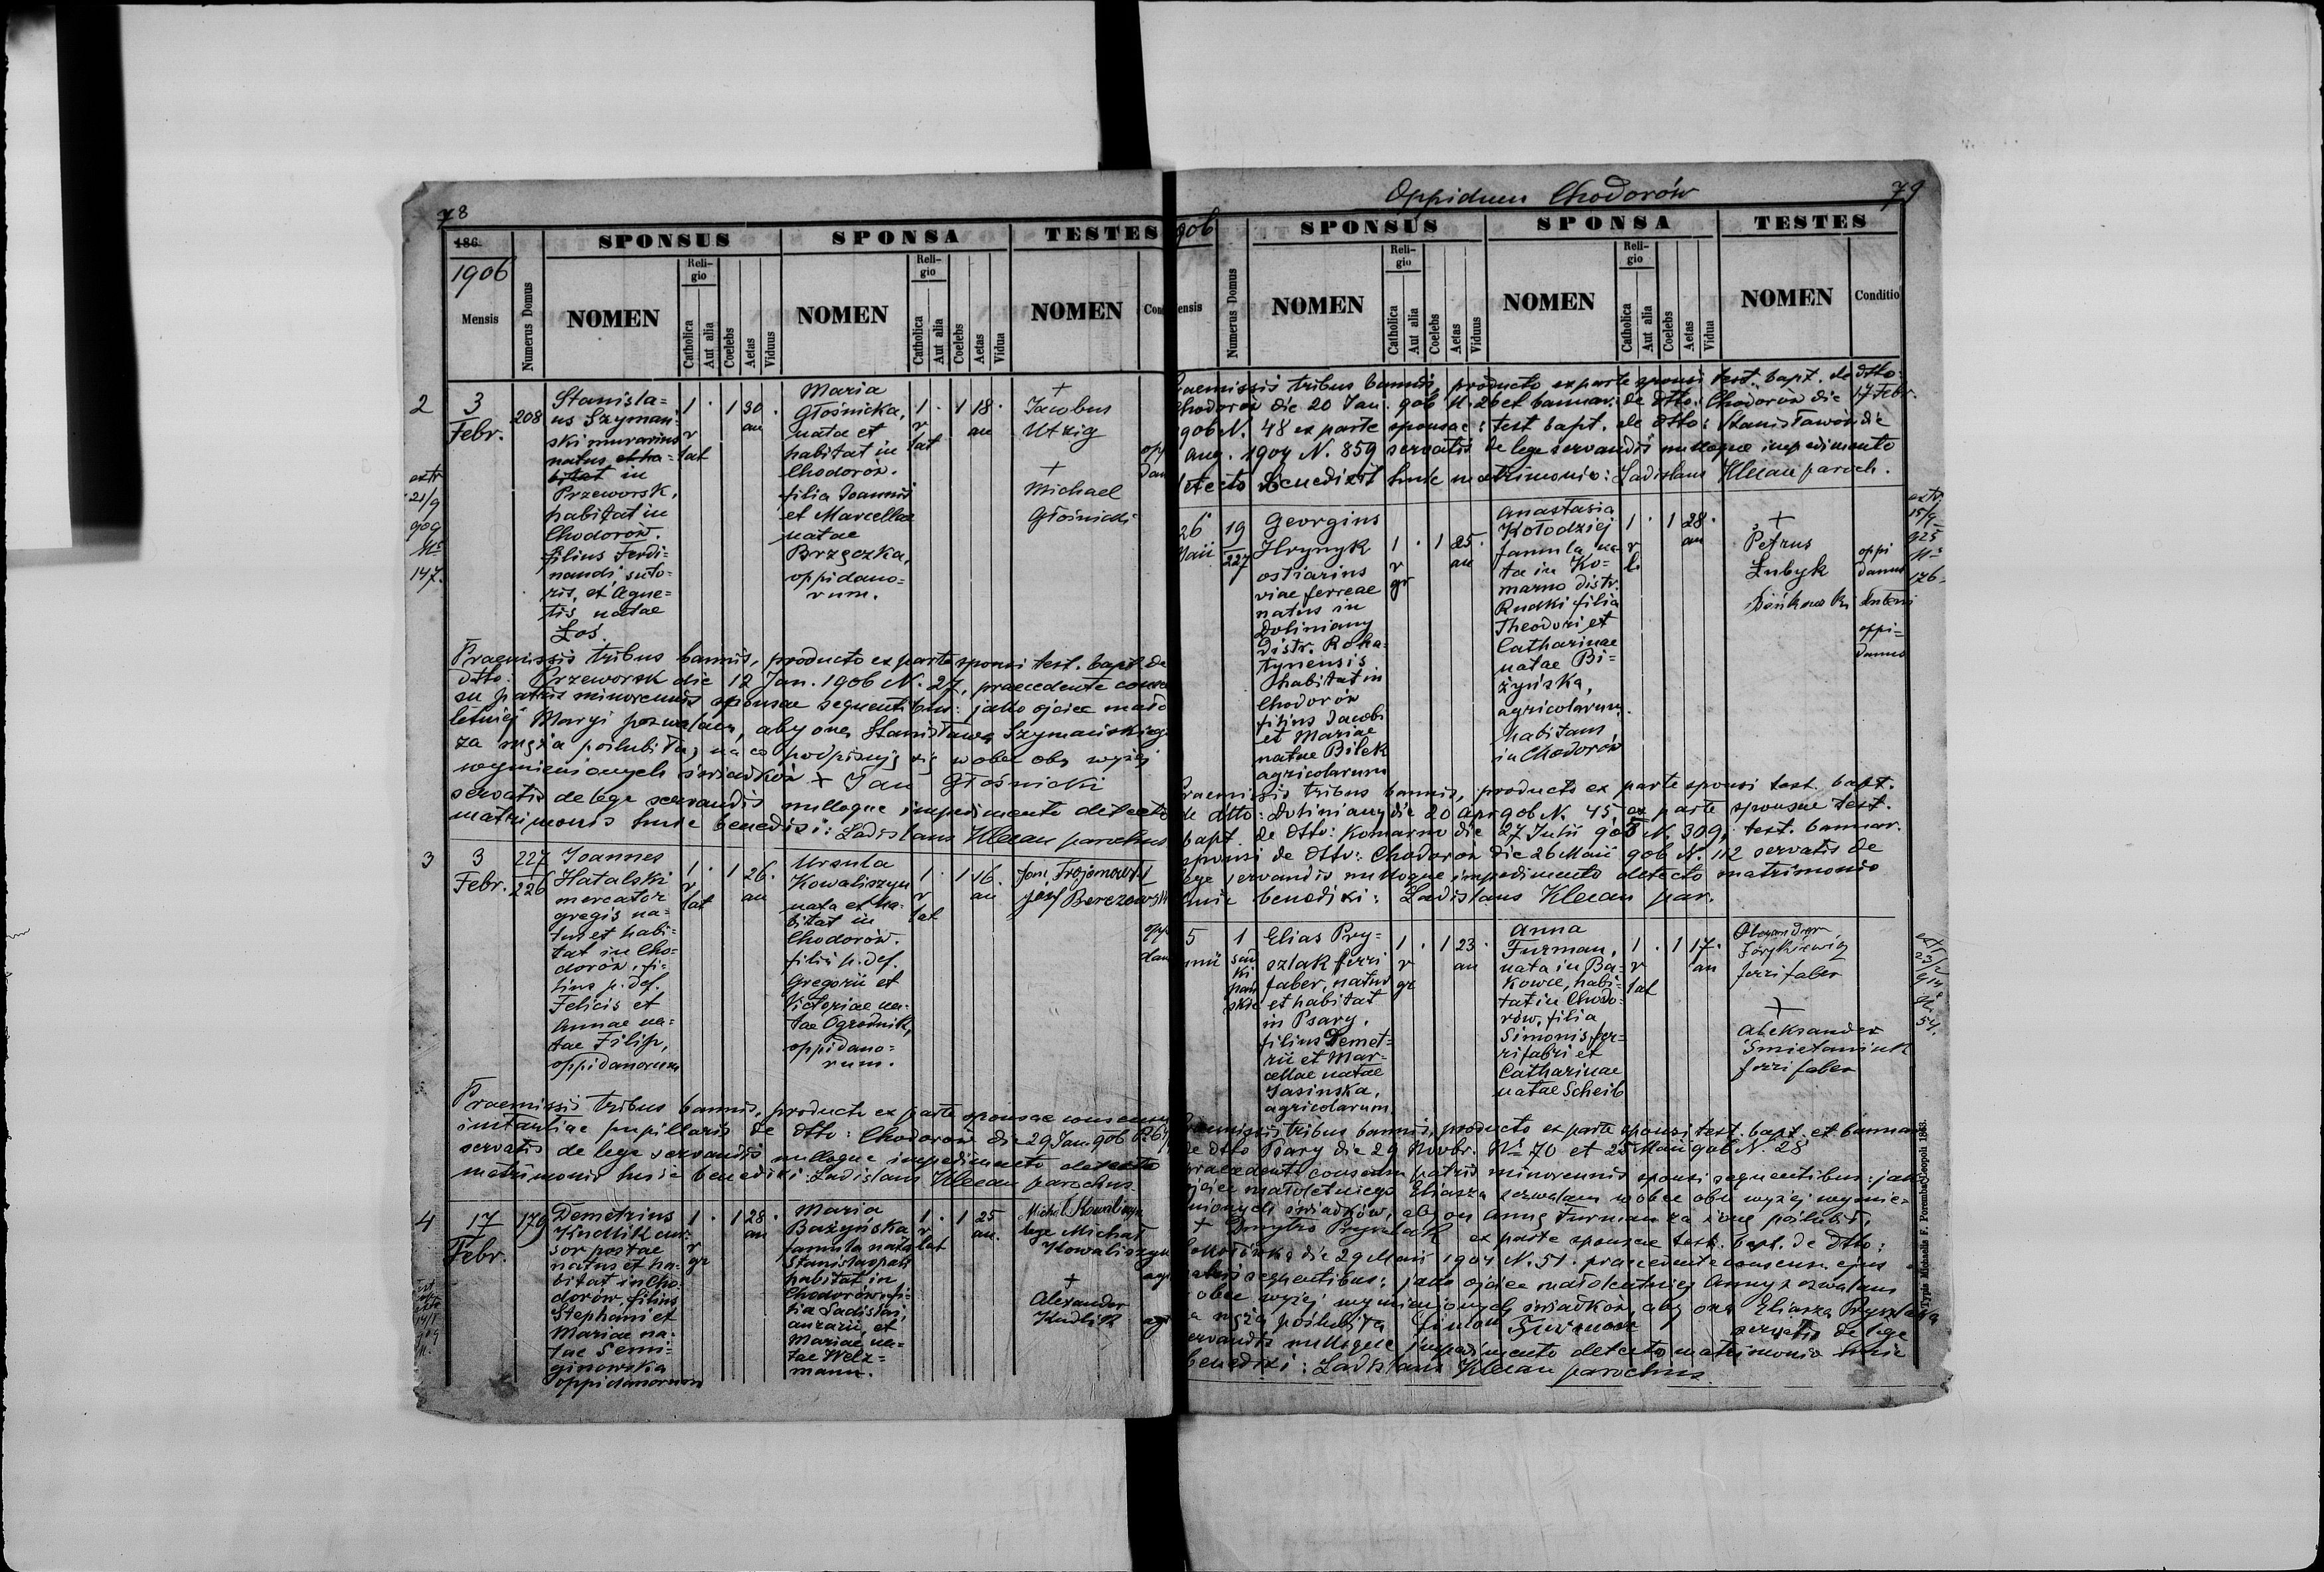 78
186
1906
Mensis
Numerus Domus
SPONSUS
NOMEN
Reli-
gio
Catholica
Aut alia
Coelebs
Aetas
Viduus
SPONSA
NOMEN
Reli-
gio
Catholica
Aut alia
Coelebs
Aetas
Vidua
TESTES
NOMEN
Con
2
3
Febr.
208
Stanisla=
us Szymań=
ski murarius
natus et ha=
bitat in
Przeworsk,
habitat in
Chodorów.
filius Ferdi=
nandi, suto=
ris, et Agne=
tis natae
Łoś.
1 .
r
lat
1 30 .
an
Maria
Głośnicka,
nata et
habitat in
Chodorów.
filia Joannis
et Marcellae
natae
Brzęczka,
oppidano=
rum.
1 .
r
lat
1 18 .
an
+
Jacobus
Utzig
+
Michael
Głośnicki
opp
dan
extr
21/9
909
No
147.
Praemissis tribus bannis, producto ex parte sponsi test. bapt. de
dtto. Przeworsk die 12 Jan. 1906 N. 27, praecedente conse
su patris minorennis sponsae sequentibus: jako ojciec mało
letniej Maryi pozwalam, aby ona Stanisława Szymańskiego
za męża poślubiła, na co podpisuję się wobec obu wyżej
wymienionych świadków + Jan Głośnicki
servatis de lege servandis nulloque impedimento detecto
matrimonio huic benedixi: Ladislaus Klecan parochus
3
3
Febr.
227
226
Joannes
Hatalski
mercator
gregis na=
tus et habi=
tat in Cho=
dorów, fi=
lius p. def.
Felicis et
Annae na=
tae Filip,
oppidanorum
1 .
r
lat
1 26 .
an
Ursula
Kowaliszyn
nata et ha=
bitat in
Chodorów.
filia p. def.
Gregorii et
Victoriae na=
tae Ogrodnik,
oppidano=
rum.
1 .
r
lat
1 16 .
an
Jan Trojanowski
Józef Berezowski
opp
dan
Praemissis tribus bannis, producto ex parte sponsae consensu
instantiae pupillaris de dtto: Chodorów die 29 Jan. 906
servatis de lege servandis nulloque impedimento detecto
matrimonio huic benedixi: Ladislaus Klecan parochus.
4
17
Febr.
179
Demetrius
Kudlik cur=
sor postae
natus et ha=
bitat in Cho=
dorów. filius
Stephani et
Mariae na=
tae Semi=
ginowska
oppidanorum
1 .
r
gr
1 28 .
an
Maria
Bażyńska
famula nata
Stanislaopoli
habitat in
Chodorów, fi=
lia Ladislai,
aurarii, et
Mariae na=
tae Welz=
mann.
1 .
r
lat
1 25
an.
Michał Kowaliszyn
lege Michał
Kowaliszyn
+
Alexander
Kudlik
agr
Oppidum Chodorów
79
906
ensis
Numerus Domus
SPONSUS
NOMEN
Reli-
gio
Catholica
Aut alia
Coelebs
Aetas
Viduus
SPONSA
NOMEN
Reli-
gio
Catholica
Aut alia
Coelebs
Aetas
Vidua
TESTES
NOMEN
Conditio
raemissis tribus bannis, producto ex parte sponsi test. bapt. de dtto:
Chodorów die 20 Jan. 906 N. 26 et bannor. de dtto. Chodorów die 17 Febr.
906 N. 48 ex parte sponsae: test. bapt. de dtto: Stanisławów die
Aug. 1904 N. 859 servatis de lege servandis nulloque impedimento
detecto benedixit huic matrimonio: Ladislaus Klecan paroch.
26
Maii
19
227
Georgius
Hrynyk
ostiarius
viae ferreae
natus in
Doliniany
distr. Roha=
tynensis
habitat in
Chodorów
filius Jacobi
et Mariae
natae Bilek
agricolarum
1 .
r
gr
1 25 .
an
Anastasia
Kołodziej
famula, na=
ta in Ko=
marno distr.
Rudki filia
Theodori et
Catharinae
natae Bi=
żyńska,
agricolarum.
habitans
in Chodorów
1 .
r
l.
1 28 .
an
+
Petrus
Łubyk
oppi
danus
oppi=
danus
extr.
15/9
925
No
176.
raemissis tribus bannis, producto ex parte sponsi test. bapt.
de dtto: Doliniany die 20 Apr 906 N. 45, ex parte sponsae test.
bapt. de dtto: Komarno die 27 Julii 905 N. 309, test. bannor.
sponsi de dtto: Chodorów die 26 Maii 906 N. 112 servatis de
lege servandis nulloque impedimento detecto matrimonio
huic benedixi: Ladislaus Klecan par.
5
unii
1
Elias Pry=
szlak ferri
faber, natus
et habitat
in Psary.
filius Demet=
rii et Mar=
cellae natae
Jasinska,
agricolarum.
1 .
r
gr
1 23 .
an
Anna
Furman,
nata in Ba=
kowce, habi=
tat in Chodo=
rów, filia
Simonis fer=
rifabri et
Catharinae
natae Scheib
1 .
r
lat
1 17 .
an
ferri faber
+
Aleksander
Smietaniuk
ferri faber
raemissis tribus bannis, producto ex parte sponsi test. bapt. et bannor.
de dtto Psary die 29 Novbr. No 70 et 25 Maii 906 N. 28
praecedente consensu patris minorennis sponsi sequentibus: jako
ojciec małoletniego Eliasza zezwalam wobec obu wyżej wymie=
nionych świadków, aby on Annę Furman za żonę poślubił,
+ Dmytro Pryszlak ex parte sponsae test. bapt. de dtto:
die 29 Maii 1904 N. 51. praecedente consensu ejus
patris sequentibus: jako ojciec małoletniej Anny zezwalam
obec wyżej wymienionych świadków, aby ona Eliasza Pryszlaka
a męża poślubiła Szymon Furman servatis de lege
servandis nulloque impedimento detecto matrimonio huic
benedixi: Ladislaus Klecan parochus.
Typis Michaelis F. Poremba Leopoli 1883.